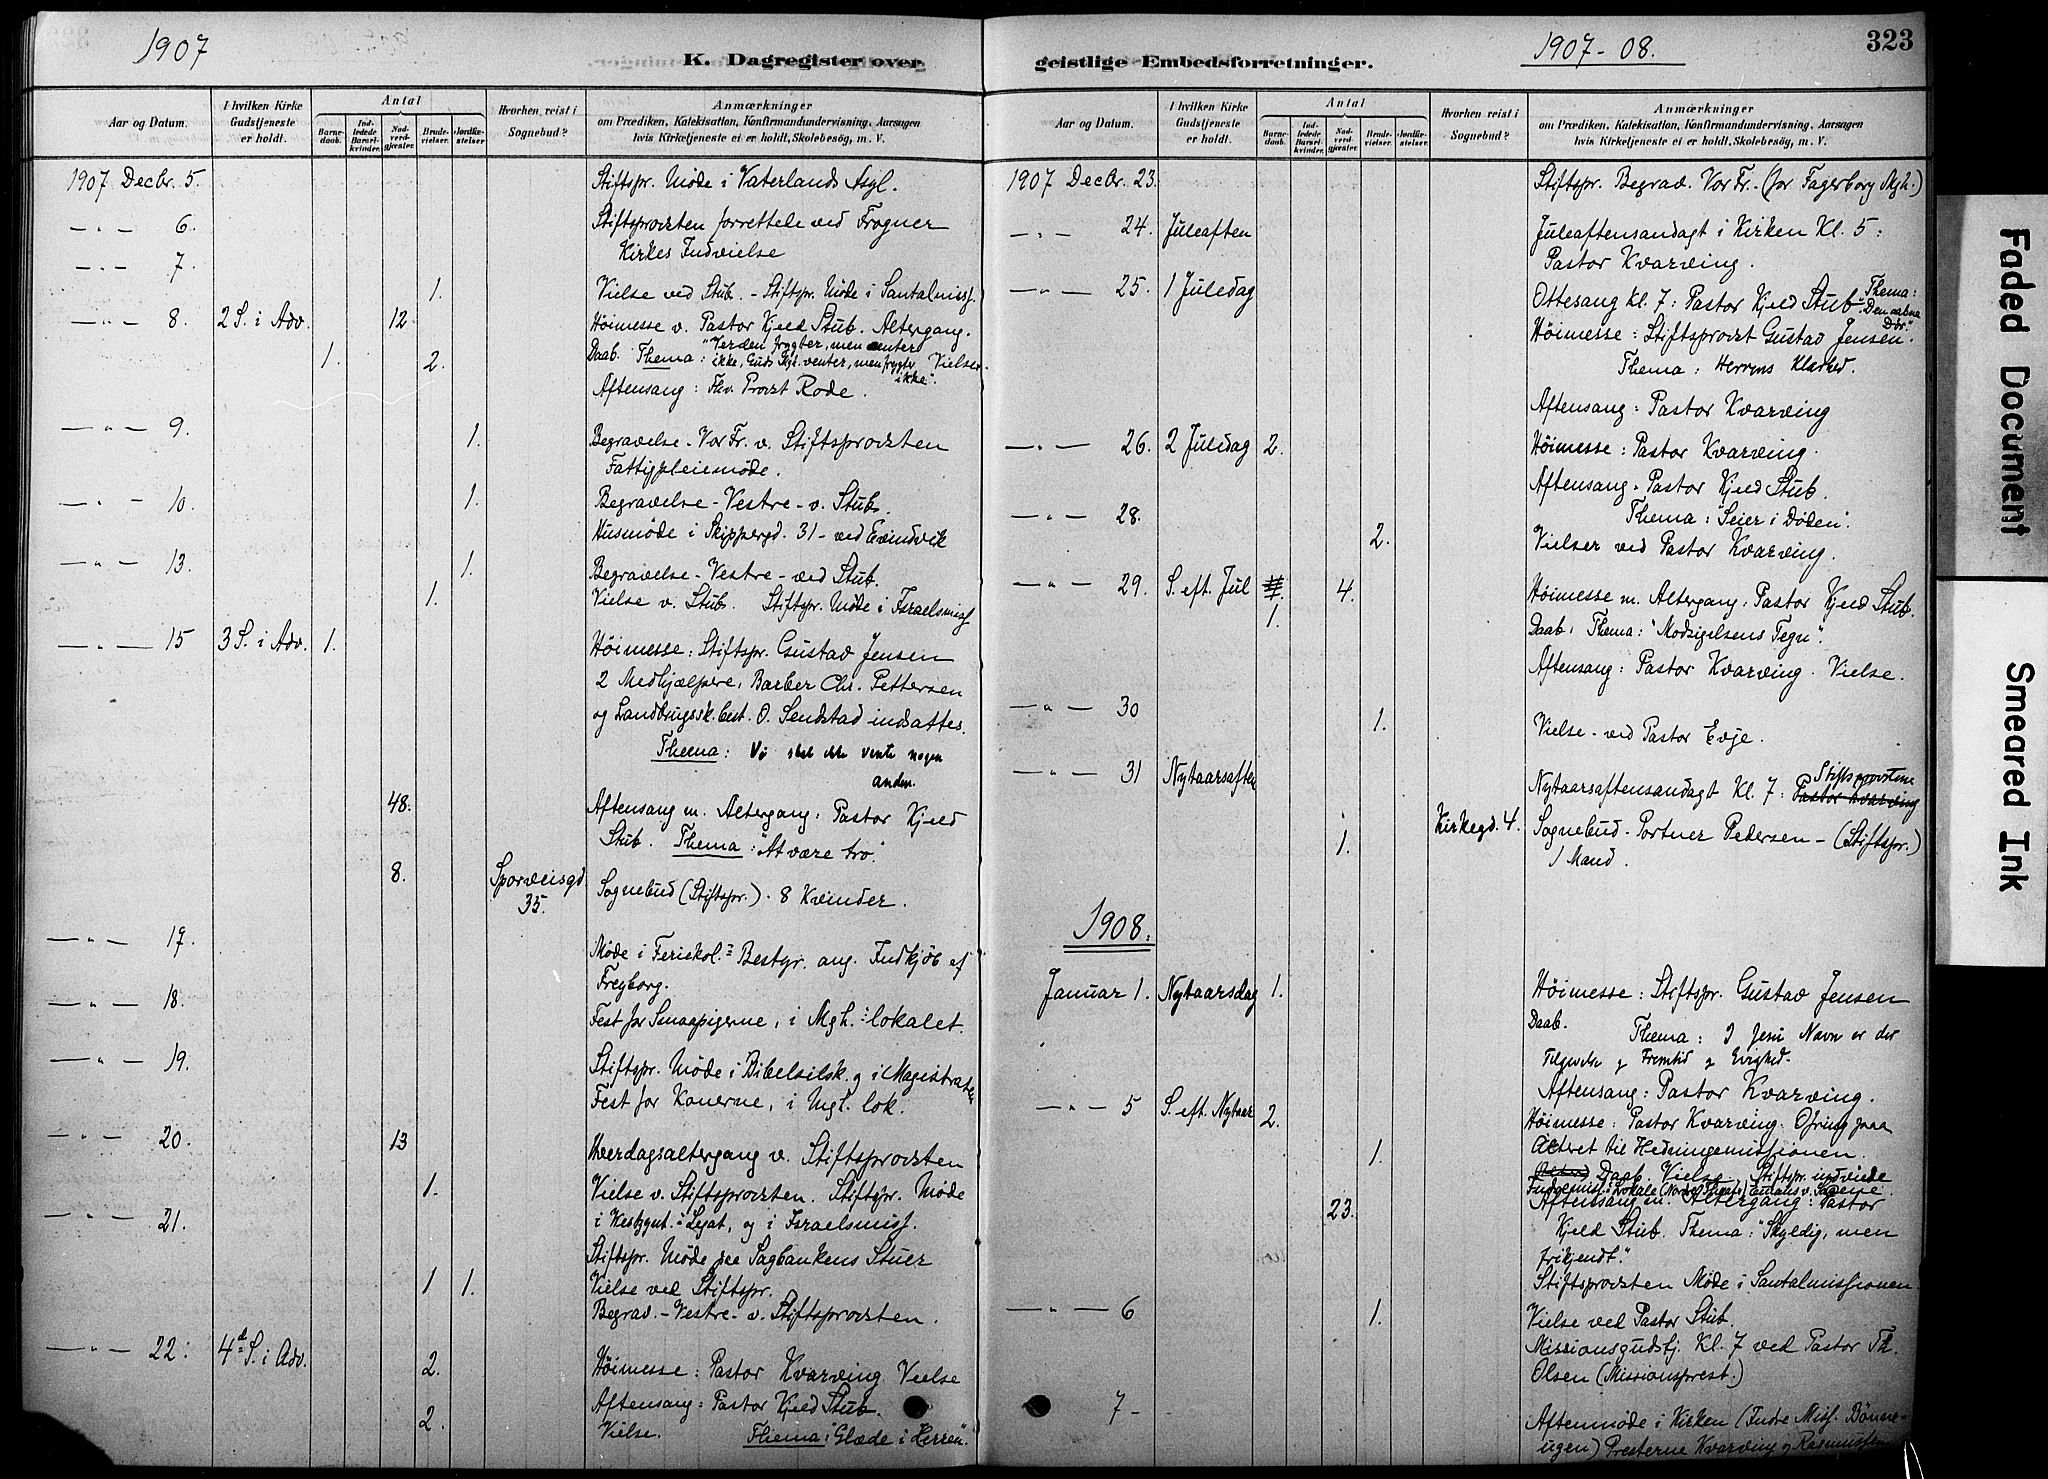 1907
K. Dagregister over
Aar og Datum.
I hvilken Kirke Gudstjeneste er holdt.
Antal
Barnedaab.
Indledede Barselkvinder.
Nadverdgjæster.
Brudevielser.
Jordfæstelser
Hvorhen reist i Sognebud?
Anmærkninger
om Prædiken, Katekisation, Konfirmandundervisning, Aarsagen
hvis Kirketjeneste ei er holdt, Skolebesög, m. V.
1907 Decbr. 5. Stiftspr. Møde i Vaterlands Asyl.
— " — 6. Stiftsprovsten forrettele ved Frogner
Kirkes Indvielse
— " — 7.
1. Vielse ved Stub. - Stiftspr. Møde i Santalmiss.
— " — 8. 2 S. i Adv. 12 Høimesse v. Pastor Kjeld Stub. Altergang.
1. 2. Daab. Thema: "Verden frygter, men venter
ikke, Guds Mgh. venter, men frygter ikke". Vielser.
Aftensang: Fhv. Provst Rode.
— " — 9. 1. Begravelse - Vor Fr. v. Stiftsprovsten
Fattigpleiemøde.
— " — 10. 1. Begravelse - Vestre - v. Stub.
Husmøde i Skippergd. 31 - ved Evindvik
— " — 13. 1. Begravelse - Vestre - ved Stub.
1. Vielse v. Stub. Stiftspr. Møde i Israelsmiss
— " — 15 3 S. i Adv. 1. Høimesse: Stiftspr. Gustav Jensen
2 Medhjælpere, Barber Chr. Pettersen
og Landbrugssk.best. O. Sendstad indsattes.
Thema: Vi skal ikke vente nogen
anden.
48. Aftensang m. Altergang: Pastor Kjeld
Stub. Thema: "At være tro".
8. Sporveisgd. 35. Sognebud (Stiftspr.). 8 Kvinder.
— " — 17. Møde i Feriekol.= Bestyr. ang. Indkjøb af
Freyborg.
— " — 18. Fest for Smaapigerne, i Mgh.=lokalet.
— " — 19. Stiftspr. Møde i Bibelselsk. og i Magistraten
Fest for Konerne, i Mgh. lok.
— " — 20. 13 Hverdagsaltergang v. Stiftsprovsten
1. Vielse v. Stiftsprovsten. Stiftspr. Møde
— " — 21. Legat, og i Israelsmiss.
Stiftspr. Møde Sagbankens Stuer
1 1. Vielse ved Stiftspr.
Begrav. - Vestre - v. Stiftsprovsten.
— " — 22. 4de S. i Adv. 2. Høimesse: Pastor Kvarving Vielse
Aftensang: Pastor Kjeld Stub.
2. Vielse. Thema: "Glæde i Herren".
geistlige Embedsforretninger.
1907-08.
323
Aar og Datum.
I hvilken Kirke Gudstjeneste er holdt.
Antal
Barnedaab.
Indledede Barselkvinder.
Nadverdgjæster.
Brudevielser.
Jordfæstelser
Hvorhen reist i Sognebud?
Anmærkninger
om Prædiken, Katekisation, Konfirmandundervisning, Aarsagen
hvis Kirketjeneste ei er holdt, Skolebesög, m. V.
1907 Decbr. 23. Stiftspr. Begrav. Vor Fr. (for Fagerborg Mgh.)
— " — 24. Juleaften Juleaftensandagt i Kirken Kl. 5:
Pastor Kvarving.
— " — 25. 1 Juledag Ottesang Kl. 7: Pastor Kjeld Stub Thema: "Den aabne Dør".
Høimesse: Stiftsprovst Gustav Jensen.
Thema: Herrens Klarhed.
Aftensang: Pastor Kvarving
— " — 26. 2 Juledag 2. Høimesse: Pastor Kvarving.
Aftensang. Pastor Kjeld Stub.
— " — 28. Thema: "Seier i Døden".
2. Vielser ved Pastor Kvarving.
— " — 29. S. eft. Jul 4. Høimesse m. Altergang: Pastor Kjeld Stub.
1. Daab. Thema: "Modsigelsens Tegn".
Aftensang: Pastor Kvarving. Vielse.
— " — 30 1. Vielse - ved Pastor Evje.
— " — 31 Nytaarsaften Nytaarsaftensandagt Kl. 7: Stiftsprovsten Pastor Kvarving
1. Kirkegd. 4. Sognebud - Portner Pedersen - (Stiftspr.)
1 Mand.
1908.
Januar 1. Nytaarsdag 1. Høimesse: Stiftspr. Gustav Jensen
Daab. Thema: I Jesu Navn er der
Tilgivelse og Fremtid og Evighed.
Aftensang: Pastor Kvarving.
— " — 5 S. eft. Nytaar 2. Høimesse: Pastor Kvarving. Ofring paa
1. Alteret til Hedningemissionen.
Daab. Vielse. Stiftspr. indviede
Indremiss. Lokale
23. Aftensang m. Altergang: Pastor
Kjeld Stub. Thema: "Skyldig, men
frikjendt".
Stiftsprovsten Møde i Santalmissionen.
— " — 6 1. Vielse ved Pastor Stub.
Missionsgudstj. Kl. 7 ved Pastor Th.
Olsen (Missionsprest.)
7 - Aftenmøde i Kirken (Indre Miss. Bønne-
ugen) Presterne Kvarving og Rasmussen
Faded Document
Smeared Ink